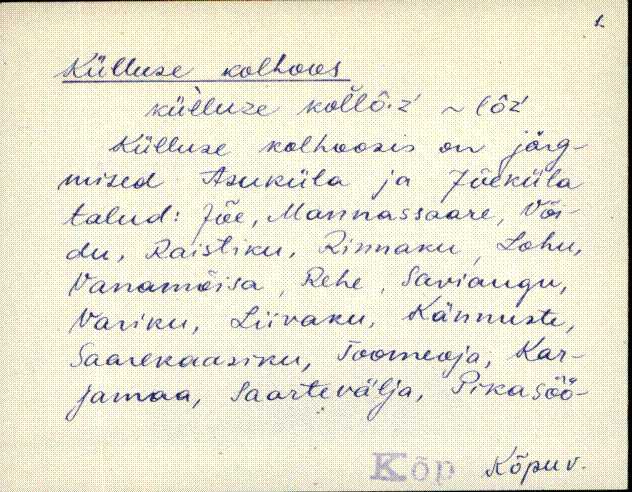 1.
Külluse kolhoos
külluze kollô·z' ~ lôz'
Külluse kolhoosis on järg-
mised Asuküla ja Jõeküla
talud: Jõe, Mannassaare, Või-
du, Raistiku, Rinnaku, Lohu,
Vanamõisa, Rehe, Saviaugu,
Variku, Liivaku, Kännuste,
Saarekaasiku, Toomeoja, Kar-
jamaa, Saartevälja, Pikasöö-
Kõp Kõpu v.